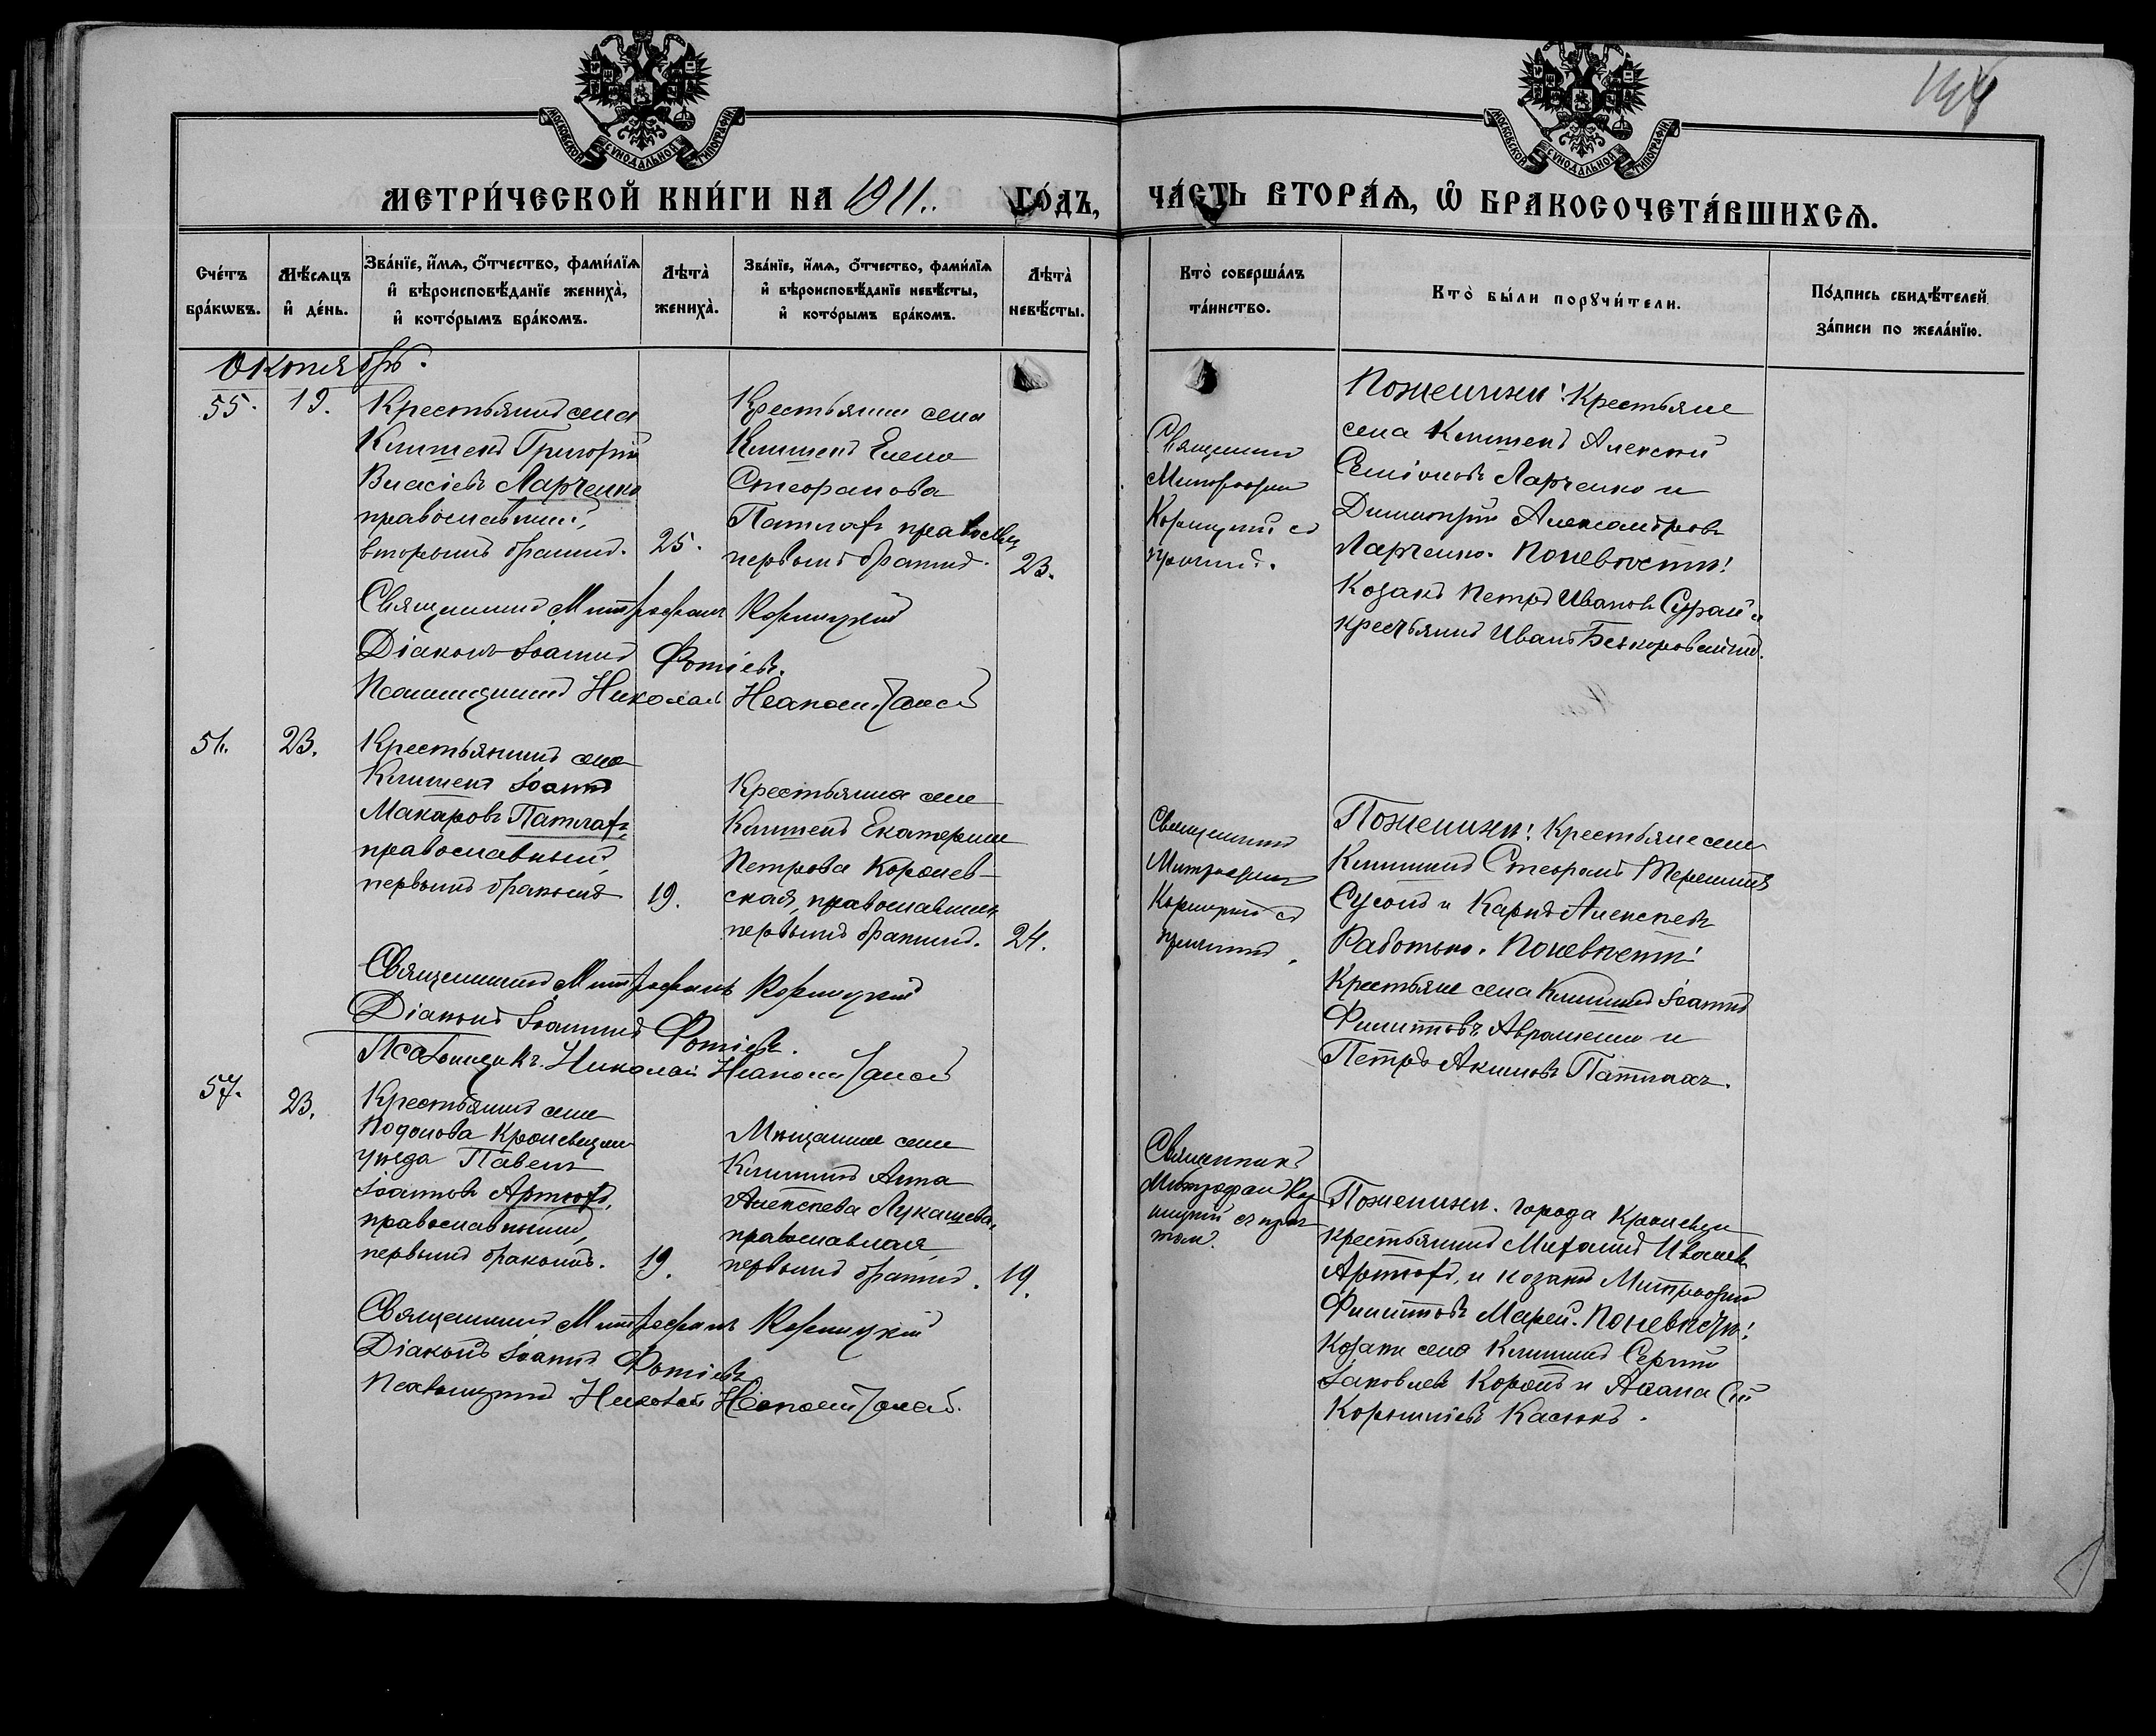 МОСКОВСКОЙ СѴНОДАЛЬНОЙ ТИПОГРАФІИ.
МОСКОВСКОЙ СѴНОДАЛЬНОЙ ТИПОГРАФІИ.
МЕТРИ́ЧЕСКОЙ КНИ́ГИ НА 1911. ГО́ДЪ,
ЧА́СТЬ ВТОРА́Ѧ, Ѽ БРАКОСОЧЕТА́ВШИХСѦ.
Сче́тъ бра́кѡвъ.
Мѣ́сѧцъ и҆ де́нь.
Зва́нїе, и҆́мѧ, ѻ҆́тчество, фами́лїѧ
и҆ вѣроисповѣ́данїе жениха̀,
и҆ кото́рымъ бра́комъ.
Лѣта̀ жениха̀.
Зва́нїе, и҆́мѧ, ѻ҆́тчество, фами́лїѧ
и҆ вѣроисповѣ́данїе невѣ́сты,
и҆ кото́рымъ бра́комъ.
Лѣта̀ невѣ́сты.
Кто̀ соверша́лъ
та́инство.
Кто̀ бы́ли порꙋчи́тели.
По́дпись свидѣ́телей
за́писи по жела́нїю.
Октябрь.
55.
19.
Крестьянинъ села
Клишекъ Григорій
Власіевъ Ларченко
православный,
вторымъ бракомъ.
25.
Крестьянка села
Клишекъ Елена
Стефанова
Патлахъ
первымъ бракомъ.
23.
Священникъ
Митрофанъ
Корницкій съ
причтомъ.
По женихѣ: Крестьяне
села Клишекъ Алексій
Симоновъ Ларченко и
Димитрій Александровъ
Ларченко. По невѣстѣ:
Козакъ Петръ Ивановъ Сурай и
крестьянинъ Иванъ
Священникъ Митрофанъ Корницкій
Діаконъ Іоаннъ Фотіевъ.
Псаломщикъ Николай
56.
23.
Крестьянинъ села
Клишекъ Іоаннъ
Макаровъ Патлахъ,
православный,
первымъ бракомъ
19.
Крестьянка села
Клишекъ Екатерина
Петрова Королев-
ская, православная,
первымъ бракомъ.
24.
Священникъ
Митрофанъ
Корницкій съ
причтомъ.
По женихѣ: Крестьяне села
Клишекъ Стефанъ
и Карпъ Алексѣевъ
Работько. По невѣстѣ:
Крестьяне села Клишекъ Іоаннъ
Филипповъ Авраменко и
Петръ Акимовъ Патлахъ.
Священникъ Митрофанъ Корницкій
Діаконъ Іоаннъ Фотіевъ.
Псаломщикъ Николай
57.
23.
Крестьянинъ села
Подолова Кролевецкаго
уѣзда Павелъ
Іоанновъ Артюхъ,
православный,
первымъ бракомъ.
19.
Мѣщанка села
Клишекъ Анна
Алексѣева Лукашева,
православная,
первымъ бракомъ.
19.
Священникъ
Митрофанъ Кор-
ницкій съ прич-
томъ.
По женихѣ. города Кролевца
крестьянинъ Михаилъ Ивановъ
Артюхъ, и козакъ Митрофанъ
Филипповъ Марей. По невѣстѣ:
Козаки села Клишекъ Сергій
Іаковлевъ и Аѳанасій
Корниліевъ Касюкъ.
Священникъ Митрофанъ Корницкій
Діаконъ Іоаннъ Фотіевъ
Псаломщикъ Николай